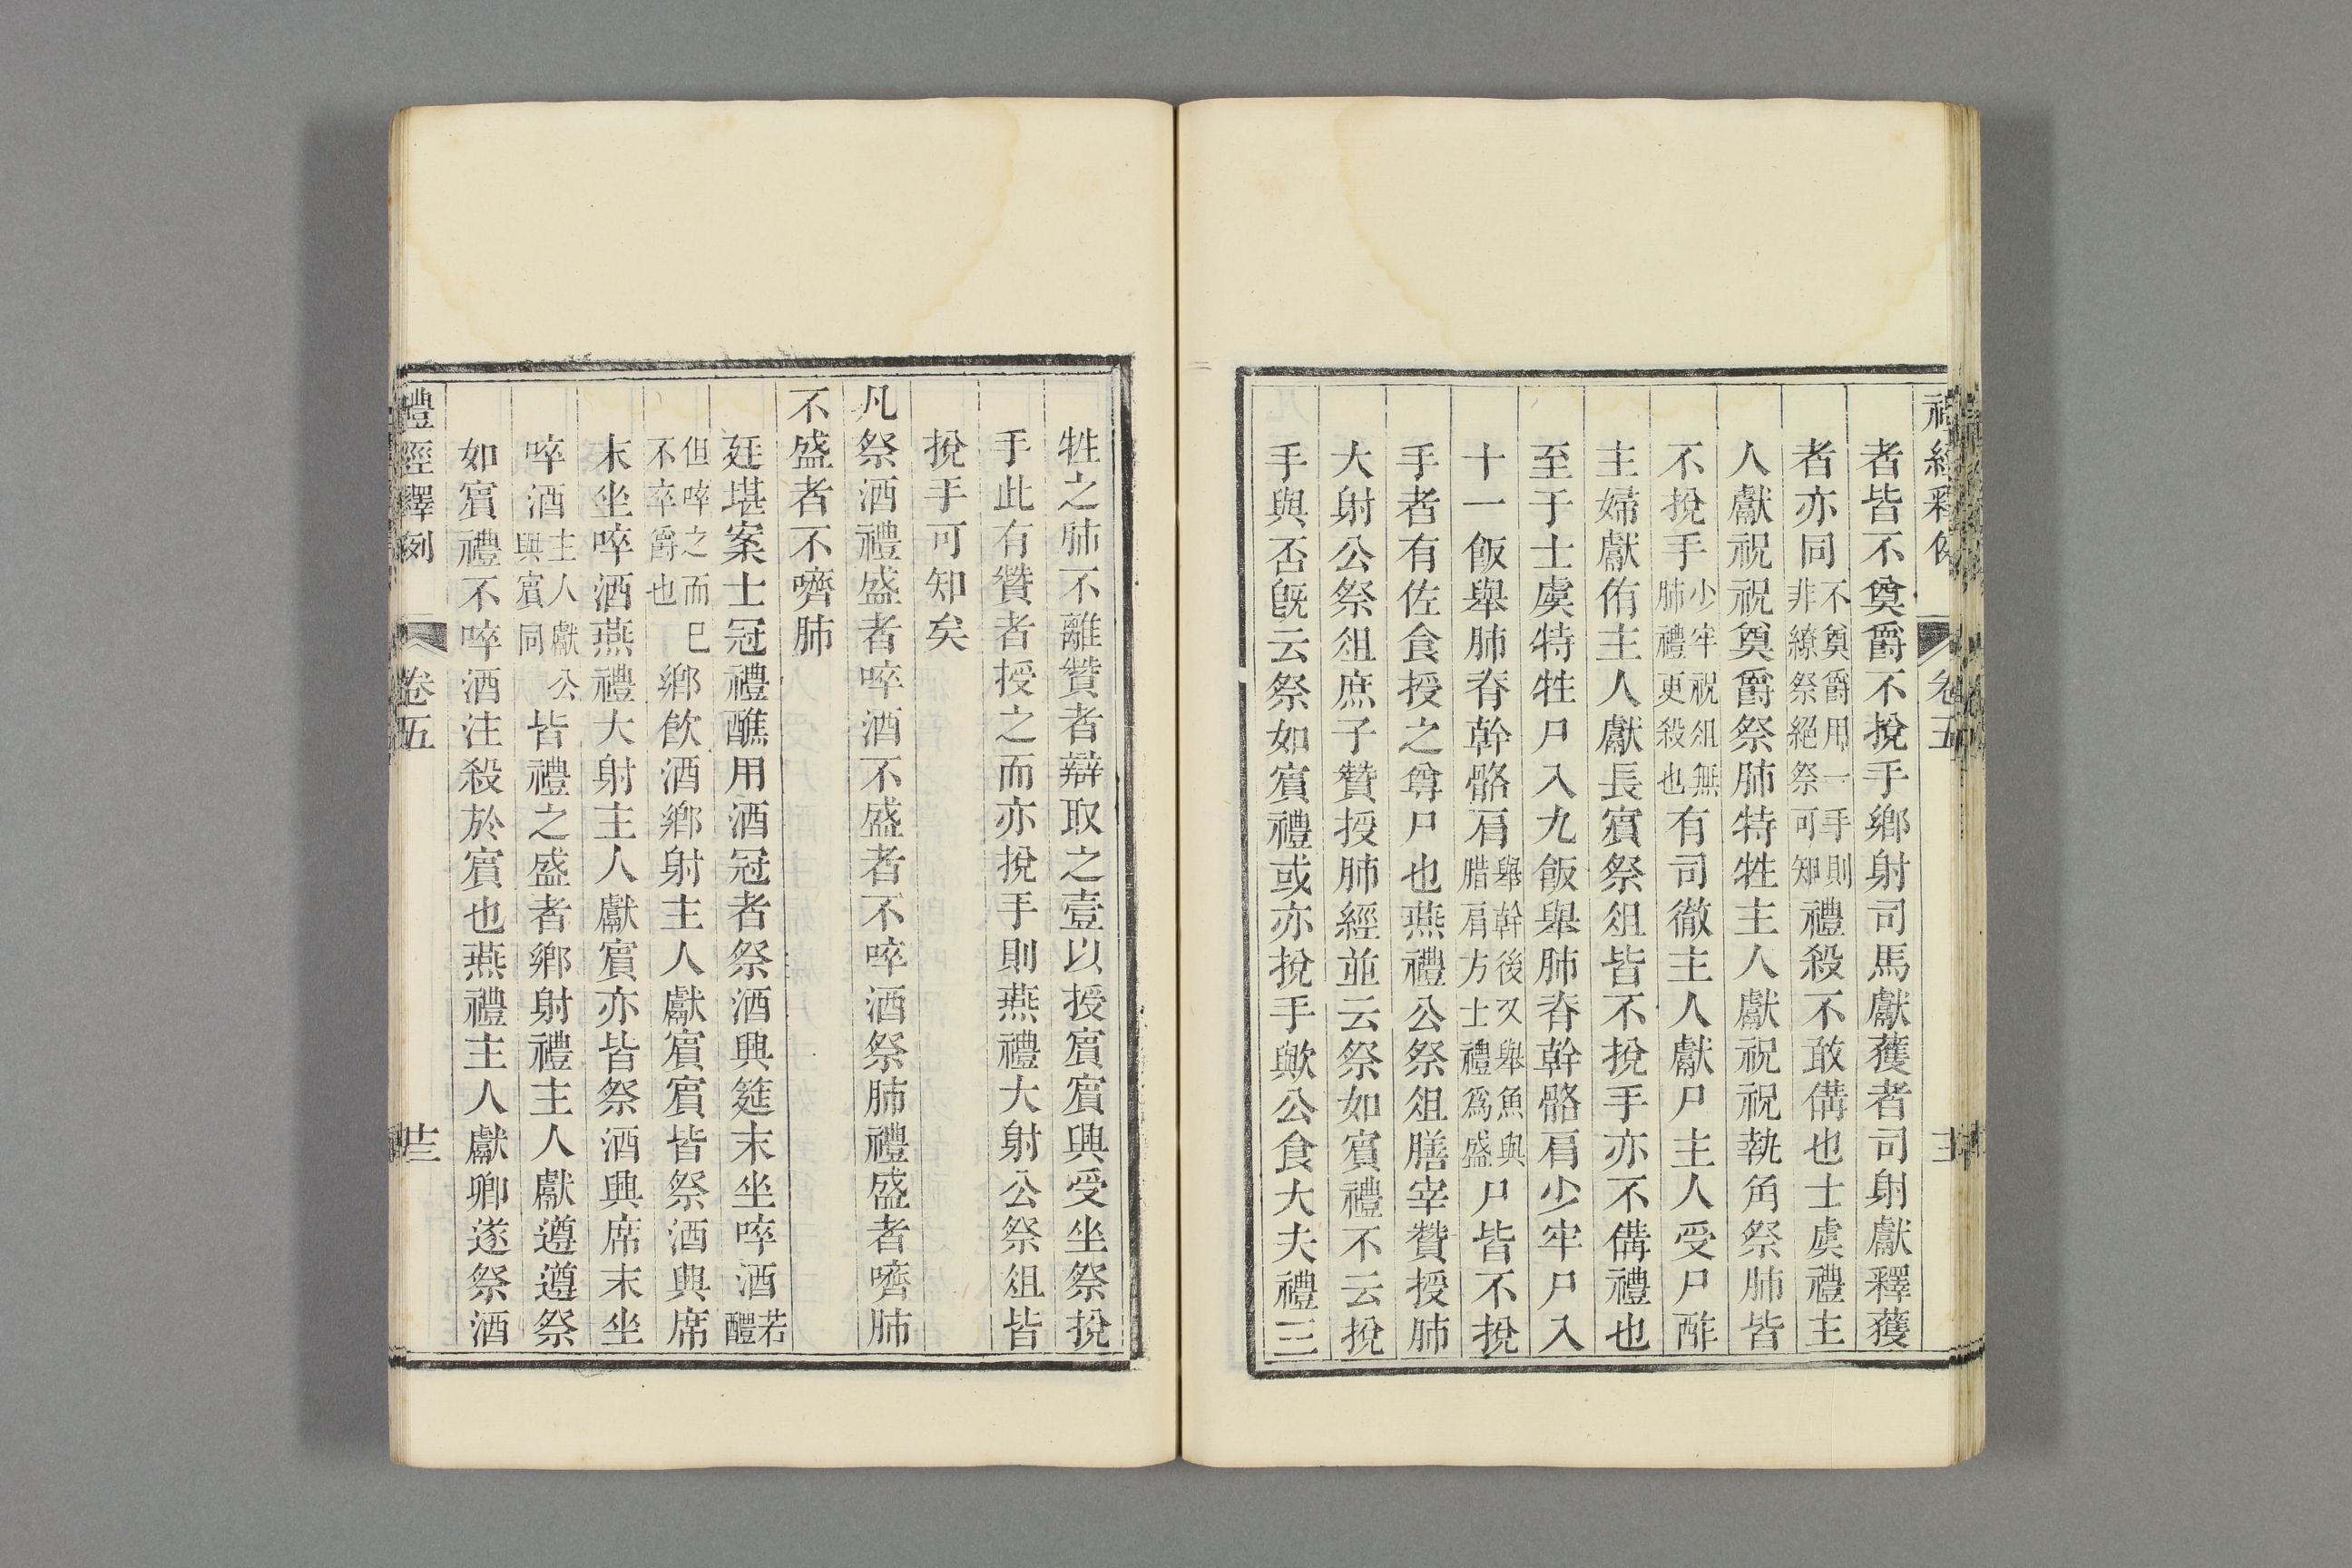 者皆不奠爵不挩手鄉射司馬獻獲者司射獻釋獲
者亦同不奠爵用一手則非繚祭絕祭可知禮殺不敢備也士虞禮主
人獻祝祝奠爵祭肺特牲主人獻祝祝執角祭肺皆
不挩手少牢祝俎無肺禮更殺也有司徹主人獻尸主人受尸酢
主婦獻侑主人獻長賓祭俎皆不挩手亦不備禮也
至于士虞特牲尸入九飯舉肺脊幹骼肩少牢尸入
十一飯舉肺脊幹骼肩舉幹後又舉魚與腊肩方士禮爲盛尸皆不挩
手者有佐食授之尊尸也燕禮公祭俎膳宰贊授肺
大射公祭俎庶子贊授肺經並云祭如賓禮不云挩
手與否旣云祭如賓禮或亦挩手歟公食大夫禮三
牲之肺不離贊者辯取之壹以授賓賓興受坐祭挩
手此有贊者授之而亦挩手則燕禮大射公祭俎皆
挩手可知矣
凡祭酒禮盛者啐酒不盛者不啐酒祭肺禮盛者嚌肺
不盛者不嚌肺
廷堪案士冠禮醮用酒冠者祭酒興筵末坐啐酒若醴
但啐之而巳不卒爵也鄉飮酒鄉射主人獻賓賓皆祭酒興席
末坐啐酒燕禮大射主人獻賓亦皆祭酒興席末坐
啐酒主人獻公與賓同皆禮之盛者鄉射禮主人獻遵遵祭
如賓禮不啐酒注殺於賓也燕禮主人獻卿遂祭酒
禮經釋例 卷五 廿三